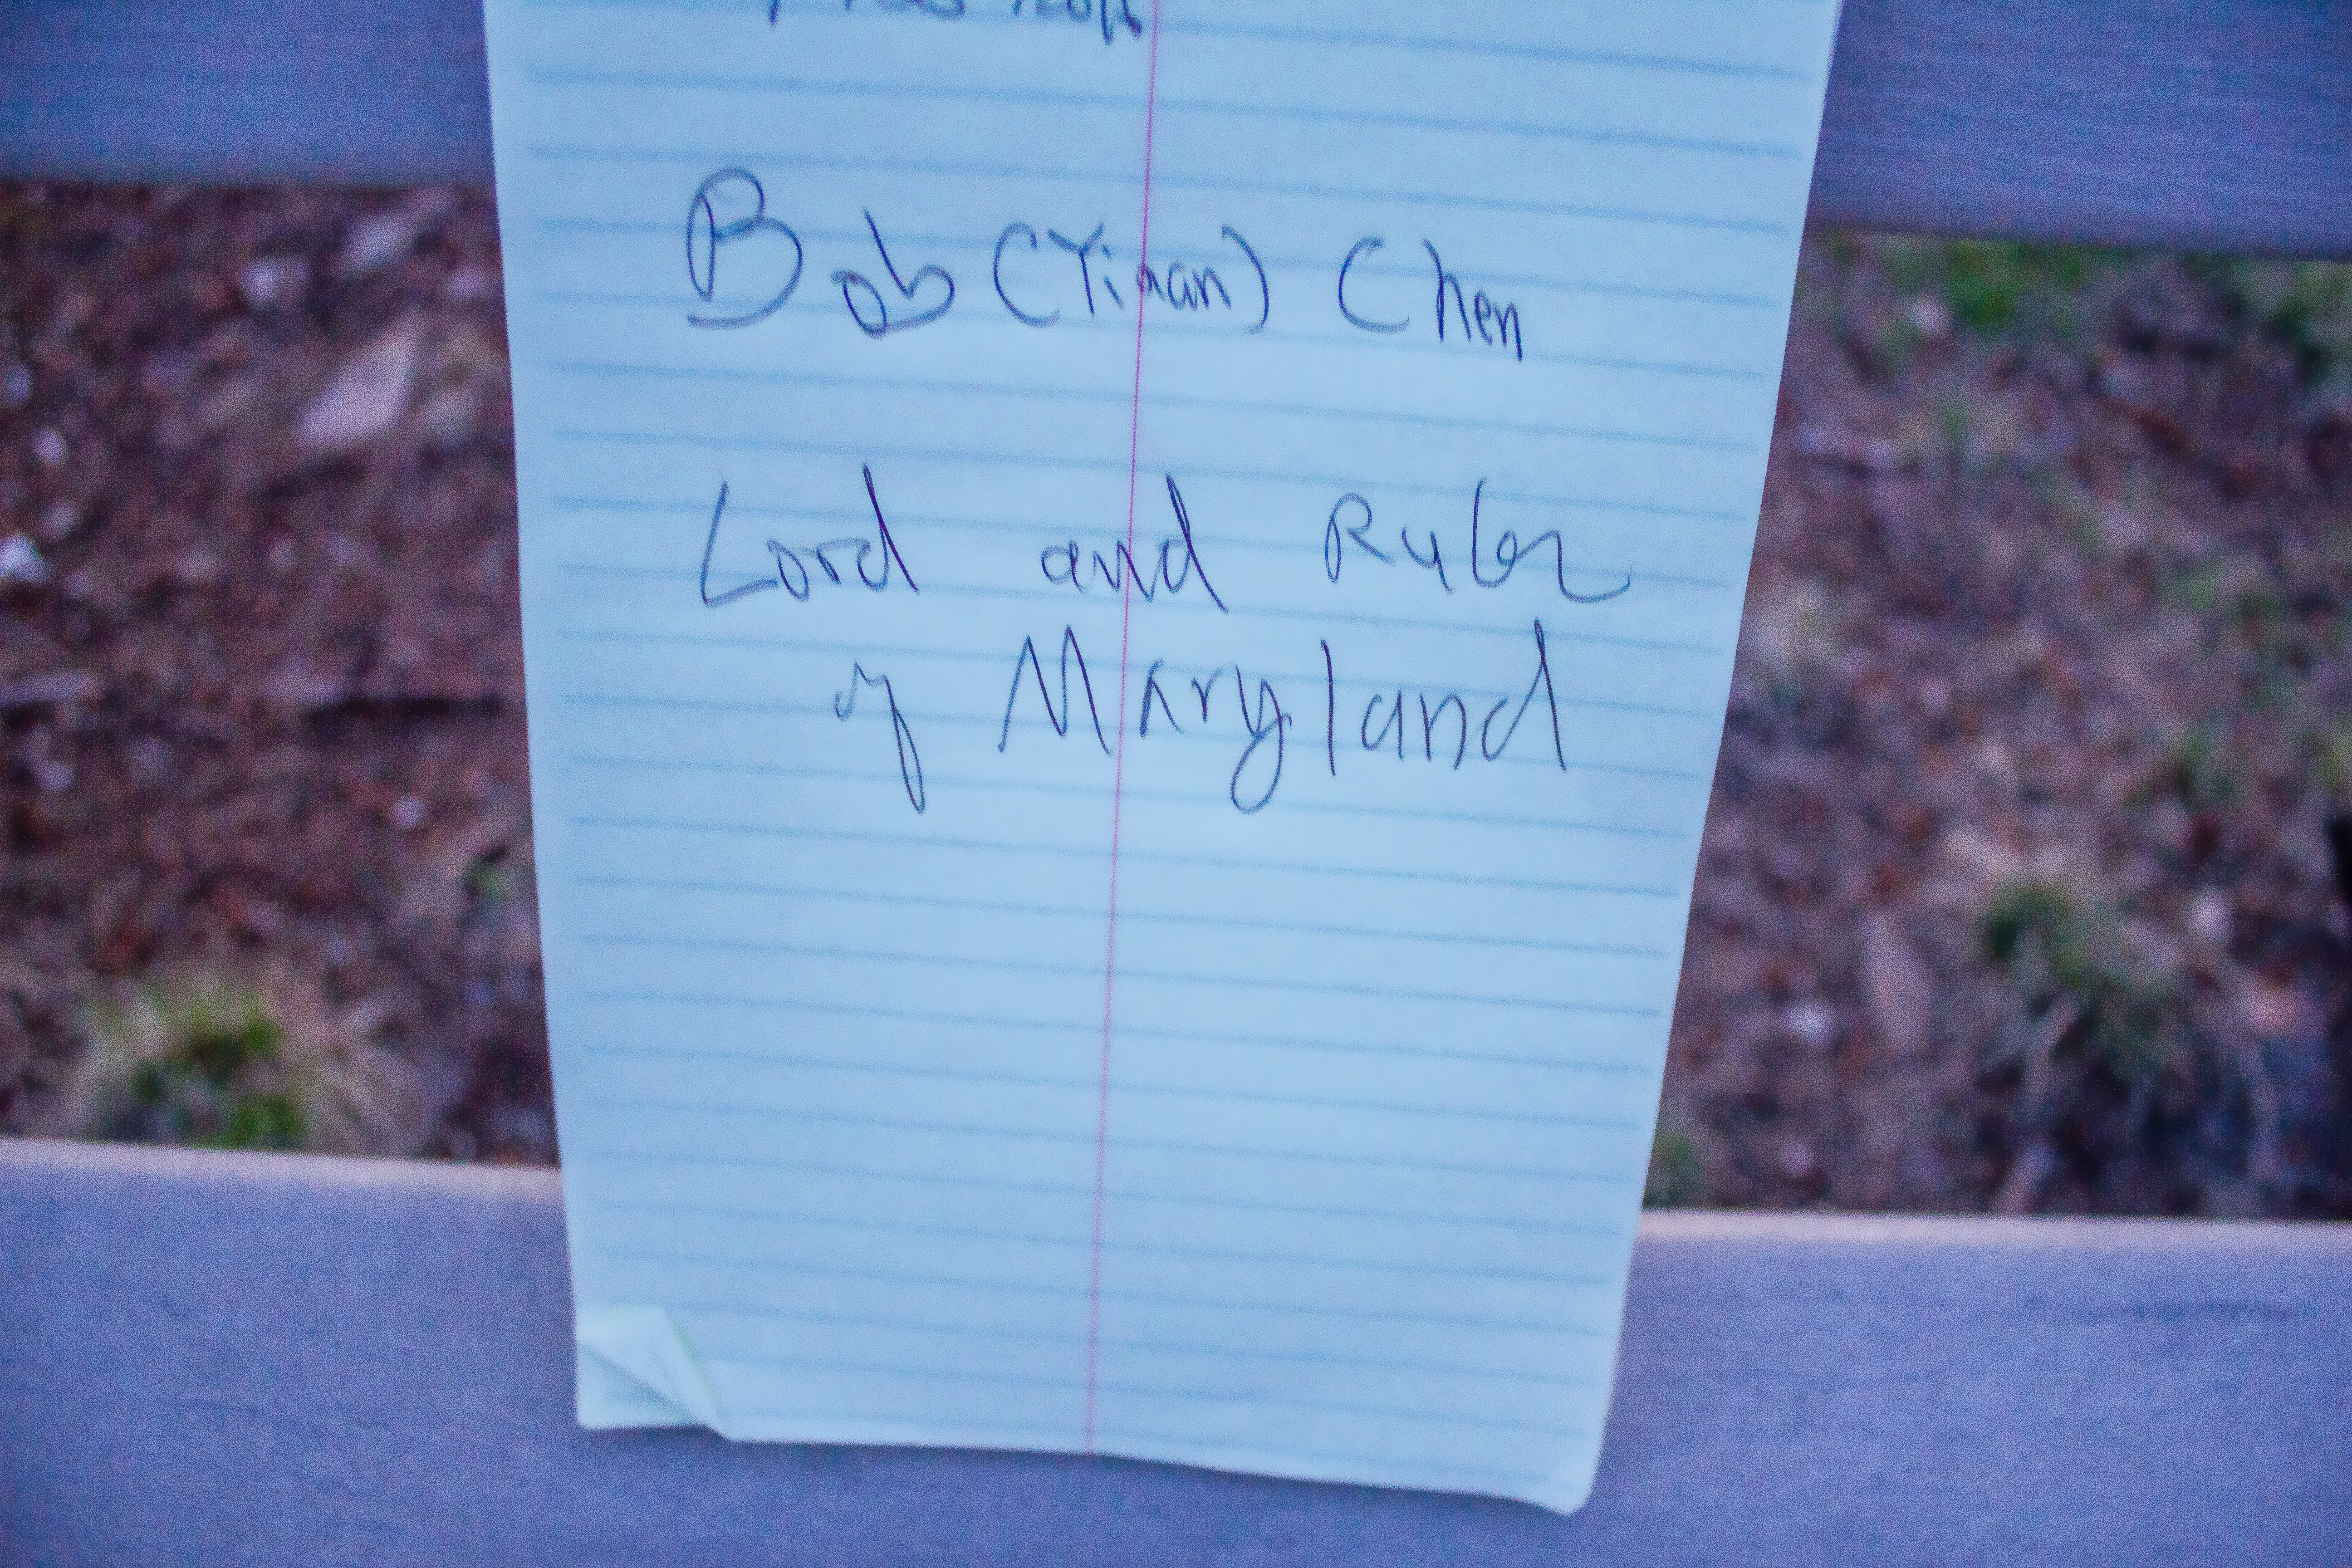 Bob (Yinan) Chen
Lord and Ruler
of Maryland